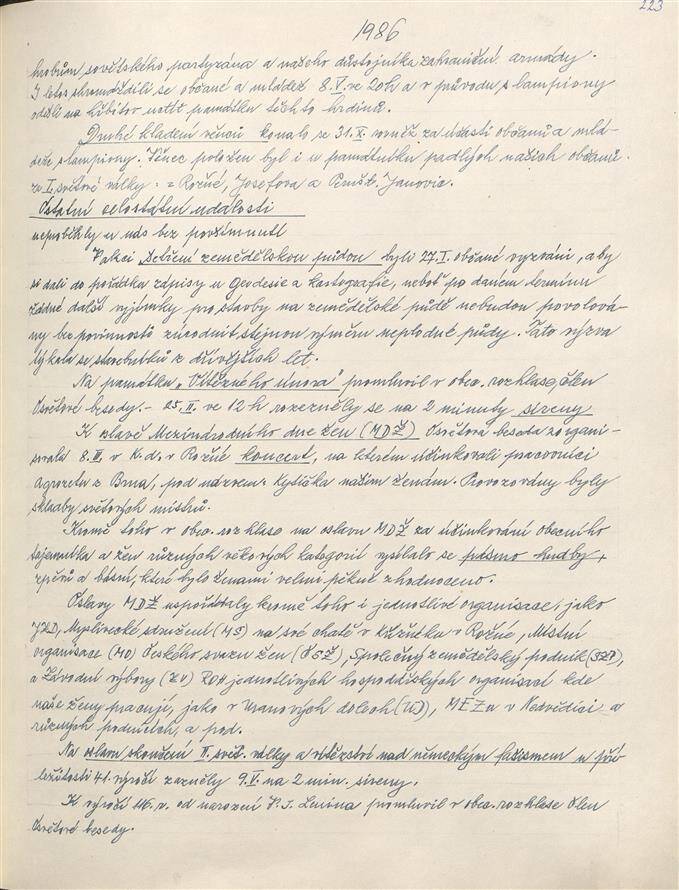 223
1986
hrobům sovětského partyzána a našeho důstojníka zahraniční armády.
I letos shromáždili se občané a mládež 8.V. ve 20h a v průvodu s lampiony
odešli na hřbitov uctít památku těchto hrdinů.
Druhé kladení věnců konalo se 31.X. rovněž za účasti občanů a mlá-
deže s lampiony. Věnec položen byl i u památníku padlých našich občanů
za I. světové války: = Rožné, Josefova a Pernšt. Janovic.
Ostatní celostátní události
neproběhly u nás bez povšimnutí
V akci Setření zemědělskou půdou byli 27.I. občané vyzváni, aby
si dali do pořádku zápisy u Geodesie a kartografie, neboť po daném termínu
žádné další výjimky pro stavby na zemědělské půdě nebudou povolová-
ny bez povinnosti zúrodnit stejnou výměru neplodné půdy. Tato výzva
týkala se stavebníků z dřívějších let.
Na památku „Vítězného února" promluvil v obec. rozhlase, člen
Osvětové besedy. - 25.II. ve 12 h rozezněly se na 2 minuty sireny
K oslavě Mezinárodního dne žen (MDŽ) Osvětová beseda zorgani-
sovala 8.III. v K.d. v Rožné koncert, na kterém účinkovali pracovníci
Agrozetu z Brna, pod názvem: Kytička našim ženám. Provozovány byly
skladby světových mistrů.
Kromě toho v obec. rozhlase na oslavu MDŽ za účinkování obecního
tajemníka a žen různých věkových kategorií vysílalo se pásmo hudby,
zpěvů a básní, které bylo ženami velmi pěkně zhodnoceno.
Oslavy MDŽ uspořádaly kromě toho i jednotlivé organisace, jako
JZD, Myslivecké sdružení (MS) na své chatě v Křižníku v Rožné, Místní
organisace (MO) Českého svazu žen (ČSŽ), Společný zemědělský podnik (SZP),
a Závodní výbory (ZV) ROH jednotlivých hospodářských organisací kde
naše ženy pracují, jako v Uranových dolech (UD), MEZu v Nedvědici a
různých podnicích, a pod.
Na oslavu skončení II. svět. války a vítězství nad německým fašismem u pří-
ležitosti 41. výročí zazněly 9.V. na 2 min. sireny.
K výročí 116. v. od narození V.I. Lenina promluvil v obec. rozhlase člen
Osvětové besedy.